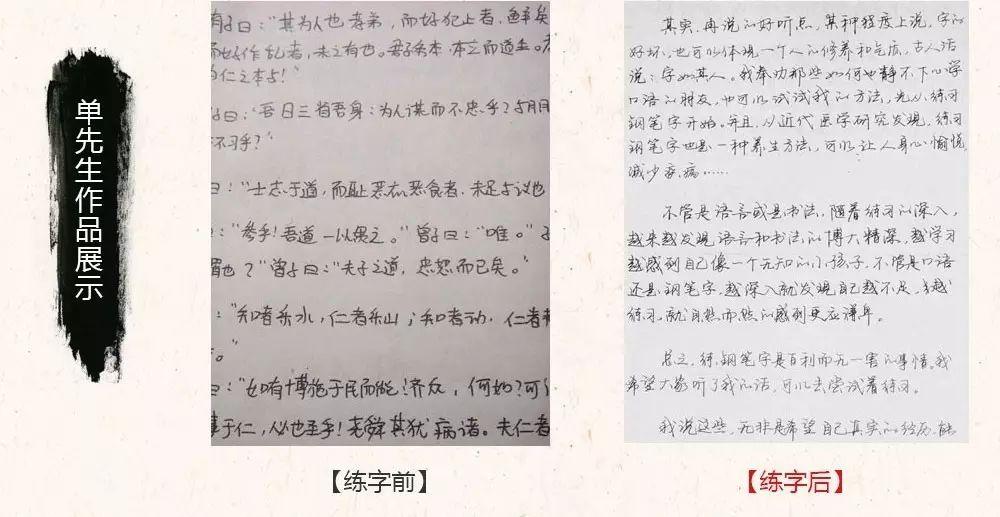 单先生作品展示
有子曰："其为人也孝弟，而好犯上者，鲜矣
而好作乱者，未之有也。君子务本，本立而道生。
仁之本与！"
曰："吾日三省吾身：为人谋而不忠乎？与朋
不习乎？"
曰："士志于道，而耻恶衣恶食者，未足与议也
："参乎！吾道一以贯之。"曾子曰："唯。"子
谓也？"曾子曰："夫子之道，忠恕而已矣。"
："知者乐水，仁者乐山；知者动，仁者
。"
曰："如有博施于民而能济众，何如？可
事于仁，必也圣乎！尧舜其犹病诸。夫仁者
【练字前】
其实，再说的好听点，某种程度上说，字的
好坏，也可以体现一个人的修养和气质，古人话
说：字如其人。我奉劝那些如何也静不下心学
口语的朋友，也可以试试我的方法，先从练习
钢笔字开始。并且，从近代医学研究发现，练习
钢笔字也是一种养生方法，可以让人身心愉悦，
减少疾病……
不管是语言或是书法，随着练习的深入，
越来越发现语言和书法的博大精深，越学习
越感到自己像一个无知的小孩子，不管是口语
还是钢笔字，越深入就发现自己越不足，越
练习，就自然而然的感到更应谦卑。
总之，练钢笔字是百利而无一害的事情。我
希望大家听了我的话，可以去尝试着练习。
我说这些，无非是希望自己真实的经历，能
【练字后】